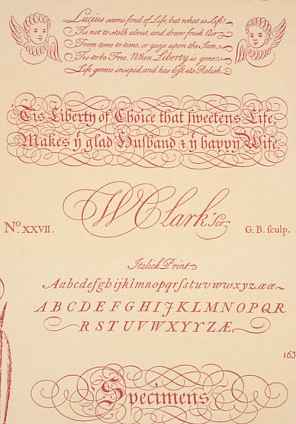 Lucius seems fond of Life but what is Life?
'Tis not to stalk about and draw fresh Air
From time to time, or gaze upon the Sun.
'Tis to be Free. When Liberty is gone
Life grows insipid and has lost its Relish.
'Tis Liberty of Choice that sweetens Life,
Makes ẏ glad Husband & ẏ happy Wife
W Clark Scr.
No. XXVII.
G. B. sculp.
Italick Print
Aabcdefghijklmnopqrſstuvwxyzææ
ABCDEFGHIJKLMNOPQR
RSTUVWXYYZÆ
163
Specimens